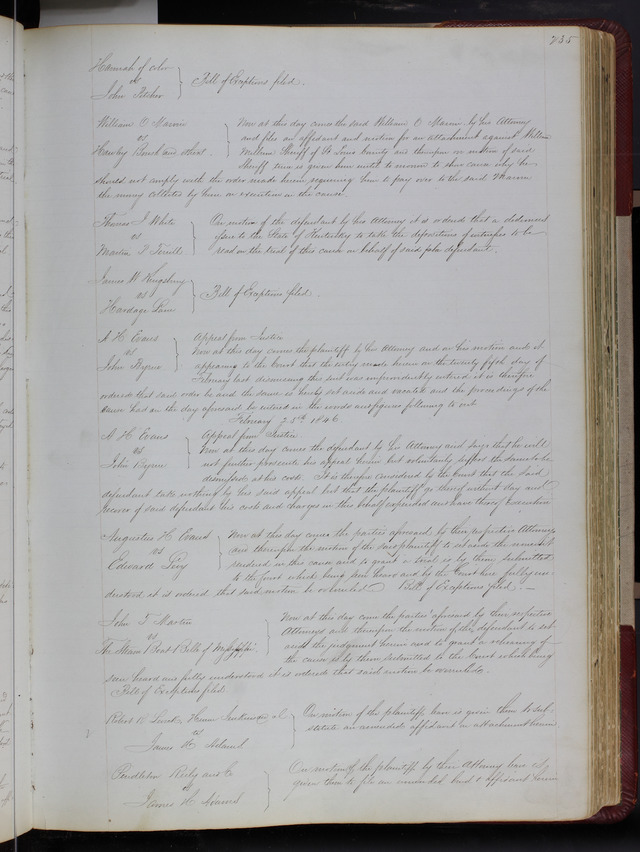 235
Hannah of color
vs
John Pitcher
Bill of Exceptions filed.
William C Marvin
vs
Hawley
Now at this day comes the said William C Marvin by his Attorney
and files an affidavit and motion for an attachment against William
Milburn Sheriff of St Louis County and thereupon on motion of said
Sheriff time is given him until to morrow to shew cause why he
should not comply with the order made herein requiring him to pay over to the said Marvin
the money collected by him on execution in the cause
Thomas J White
vs
Martin
On motion of the defendant by his Attorney it is ordered that a dedimus
issue to the State of Kentucky to take the depositions of witnesses to be
read on the trial of this cause on behalf of said defendant.
James W Kingsbury
vs
Hardage Lane
Bill of Exceptions filed.
A H Evans
vs
John Byrne
Appeal from Justice
Now at this day comes the plaintiff by his Attorney and on his motion and it
appearing to the Court that the entry made herein on the twenty fifth day of
February last dismissing this suit was improvidently entered it is therefore
ordered that said order be and the same is hereby set aside and vacated and the proceedings of the
cause had on the day aforesaid be entered in the words and figures following to wit
February 25th 1846
A H Evans
vs
John Byrne
Appeal from Justice
Now at this day comes the defendant by his Attorney and says that he will
not further prosecute his appeal herein but voluntarily suffers the same to be
dismissed at his costs. It is therefore considered by the Court that the said
defendant take nothing by his said appeal but that the plaintiff go thereof without day and
recover of said defendant his costs and charges in this behalf expended and have thereof Execution
Augustus H Evans
vs
Edward
Now at this day comes the parties aforesaid by their respective Attorneys
and thereupon the motion of the said plaintiff to set aside the nonsuit
rendered in this cause and to grant a trial is by them submitted
to the Court which being seen heard and by the Court here fully un
derstood it is ordered that said motion be overruled Bill of Exceptions filed.
John T Martin
vs
The Steam Boat Belle of Mississippi
Now at this day come the parties aforesaid by their respective
Attorneys and thereupon the motion of the defendant to set
aside the judgment herein and to grant a rehearing of
the cause is by them submitted to the Court which being
seen heard and fully understood it is ordered that said motion be overruled.
Bill of Exceptions filed
Robert
vs
James H
On motion of the plaintiffs leave is given them to sub-
stitute an amended affidavit in attachment herein
Pendleton Riely and Co
vs
James H
On motion of the plaintiffs by their Attorney leave is
given them to file an amended bond & affidavit herein